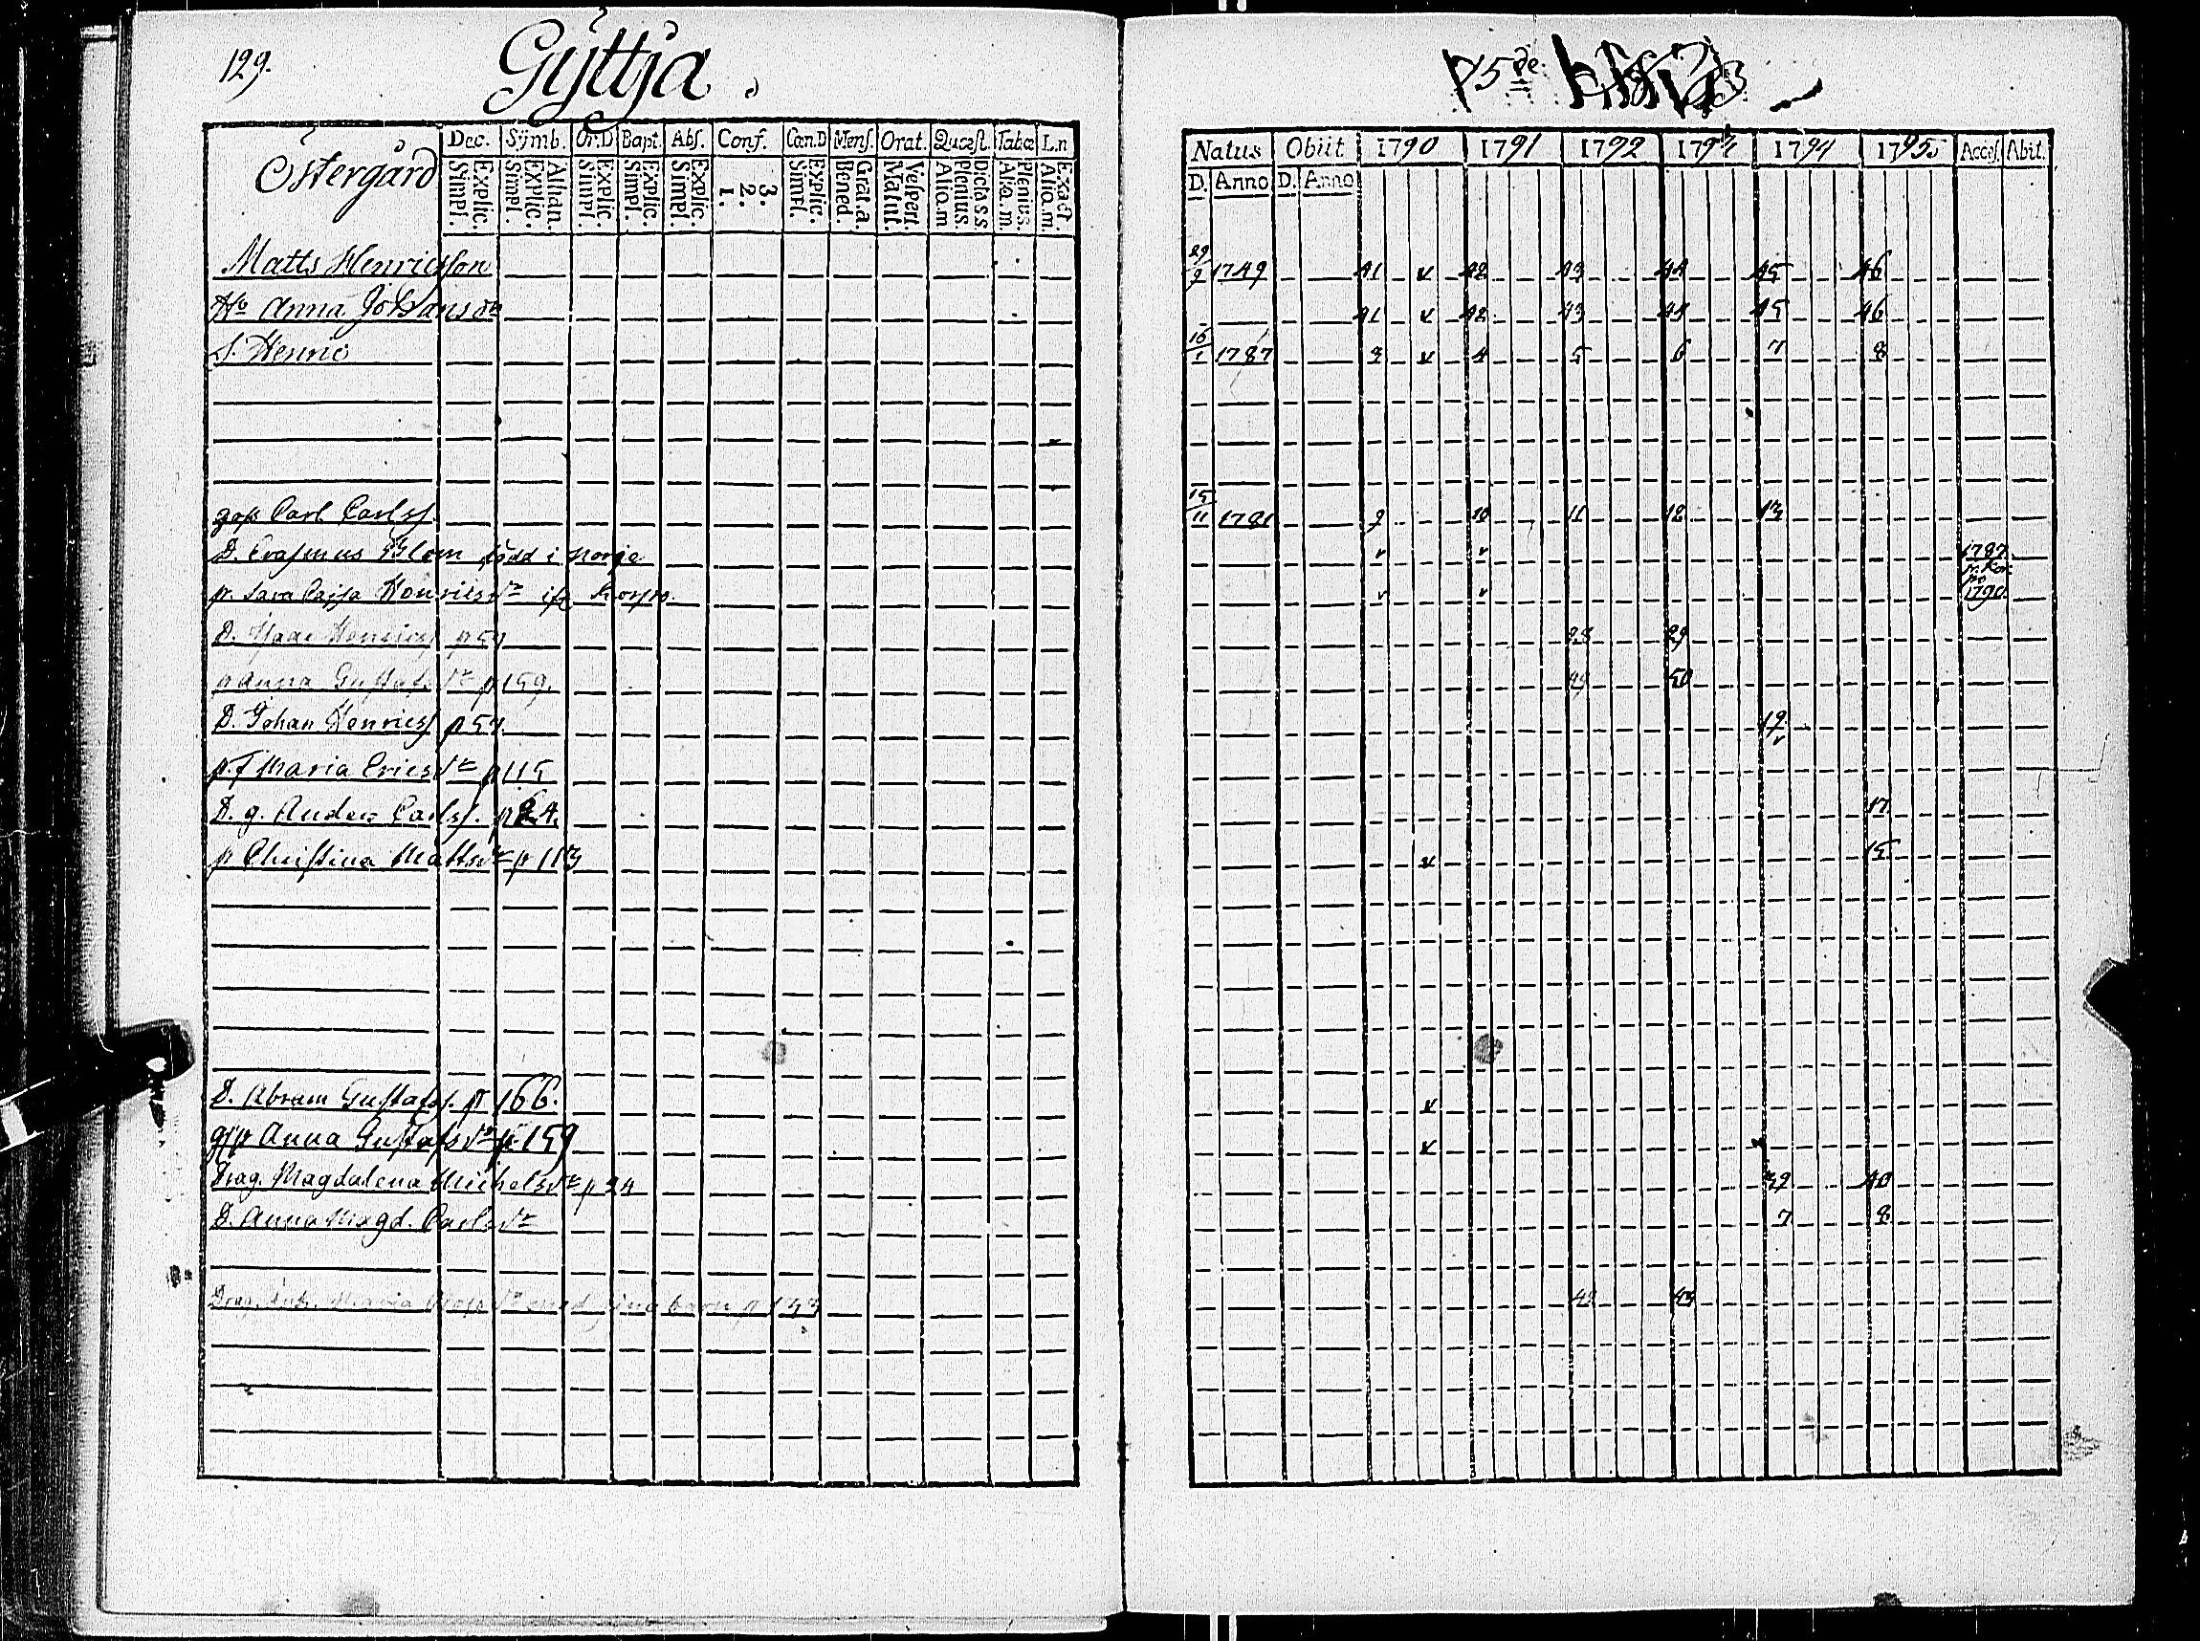 129.
Gyttja.
Östergård
Dec. Symb. Or.D Bapt. Abs. Conf. Can.D Mens. Orat. Quæst. Tabæ L.n
Explic. Simpl. Athan. Explic. Simpl. Explic. Simpl. Explic. Simpl. Explic. Simpl. 3. 2. 1. Explic. Simpl. Grat.a. Bened. Vespert. Matut. Dicta s.s. Plenius. Aliq.m Plenius. Aliq.m. Exact. Aliq.m.
Matts Henricsson
Hu Anna Johansdr
S. Henric
goss Carl Carlss.
D. Erasmus Blom född i Norje
p. Sara Cajsa Henricsdr ifr Korpo.
D. Isaac Henricss p 57
p Anna Gustafsdr p 159.
D. Johan Henricss p 57.
p. f Maria Ericsdr p 115
D. g. Anders Carlss. p 24.
p Christina Mattsdr p 113
D. Abram Gustafss. p 166.
Anna Gustafsdr p 159
Drag. Magdalena Michelsdr p 24
D. Anna Magd. Carlsdr
Drag. Enk. Maria med sina barn p 133
75de
Natus Obiit 1790 1791 1792 1793 1794 1795 Acces. Abit.
D. Anno D. Anno
29/9 1749 41 v 42 43 44 45 46
41 v 42 43 44 45 46
16/1 1787 3 v 4 5 6 7 8
15/11 1781 9 10 11 12 13
v v 1787
fr. Kor
po
v v 1790
28 29
49 50
19
v
17
v 15
v
v
39 40
7 8
42 43